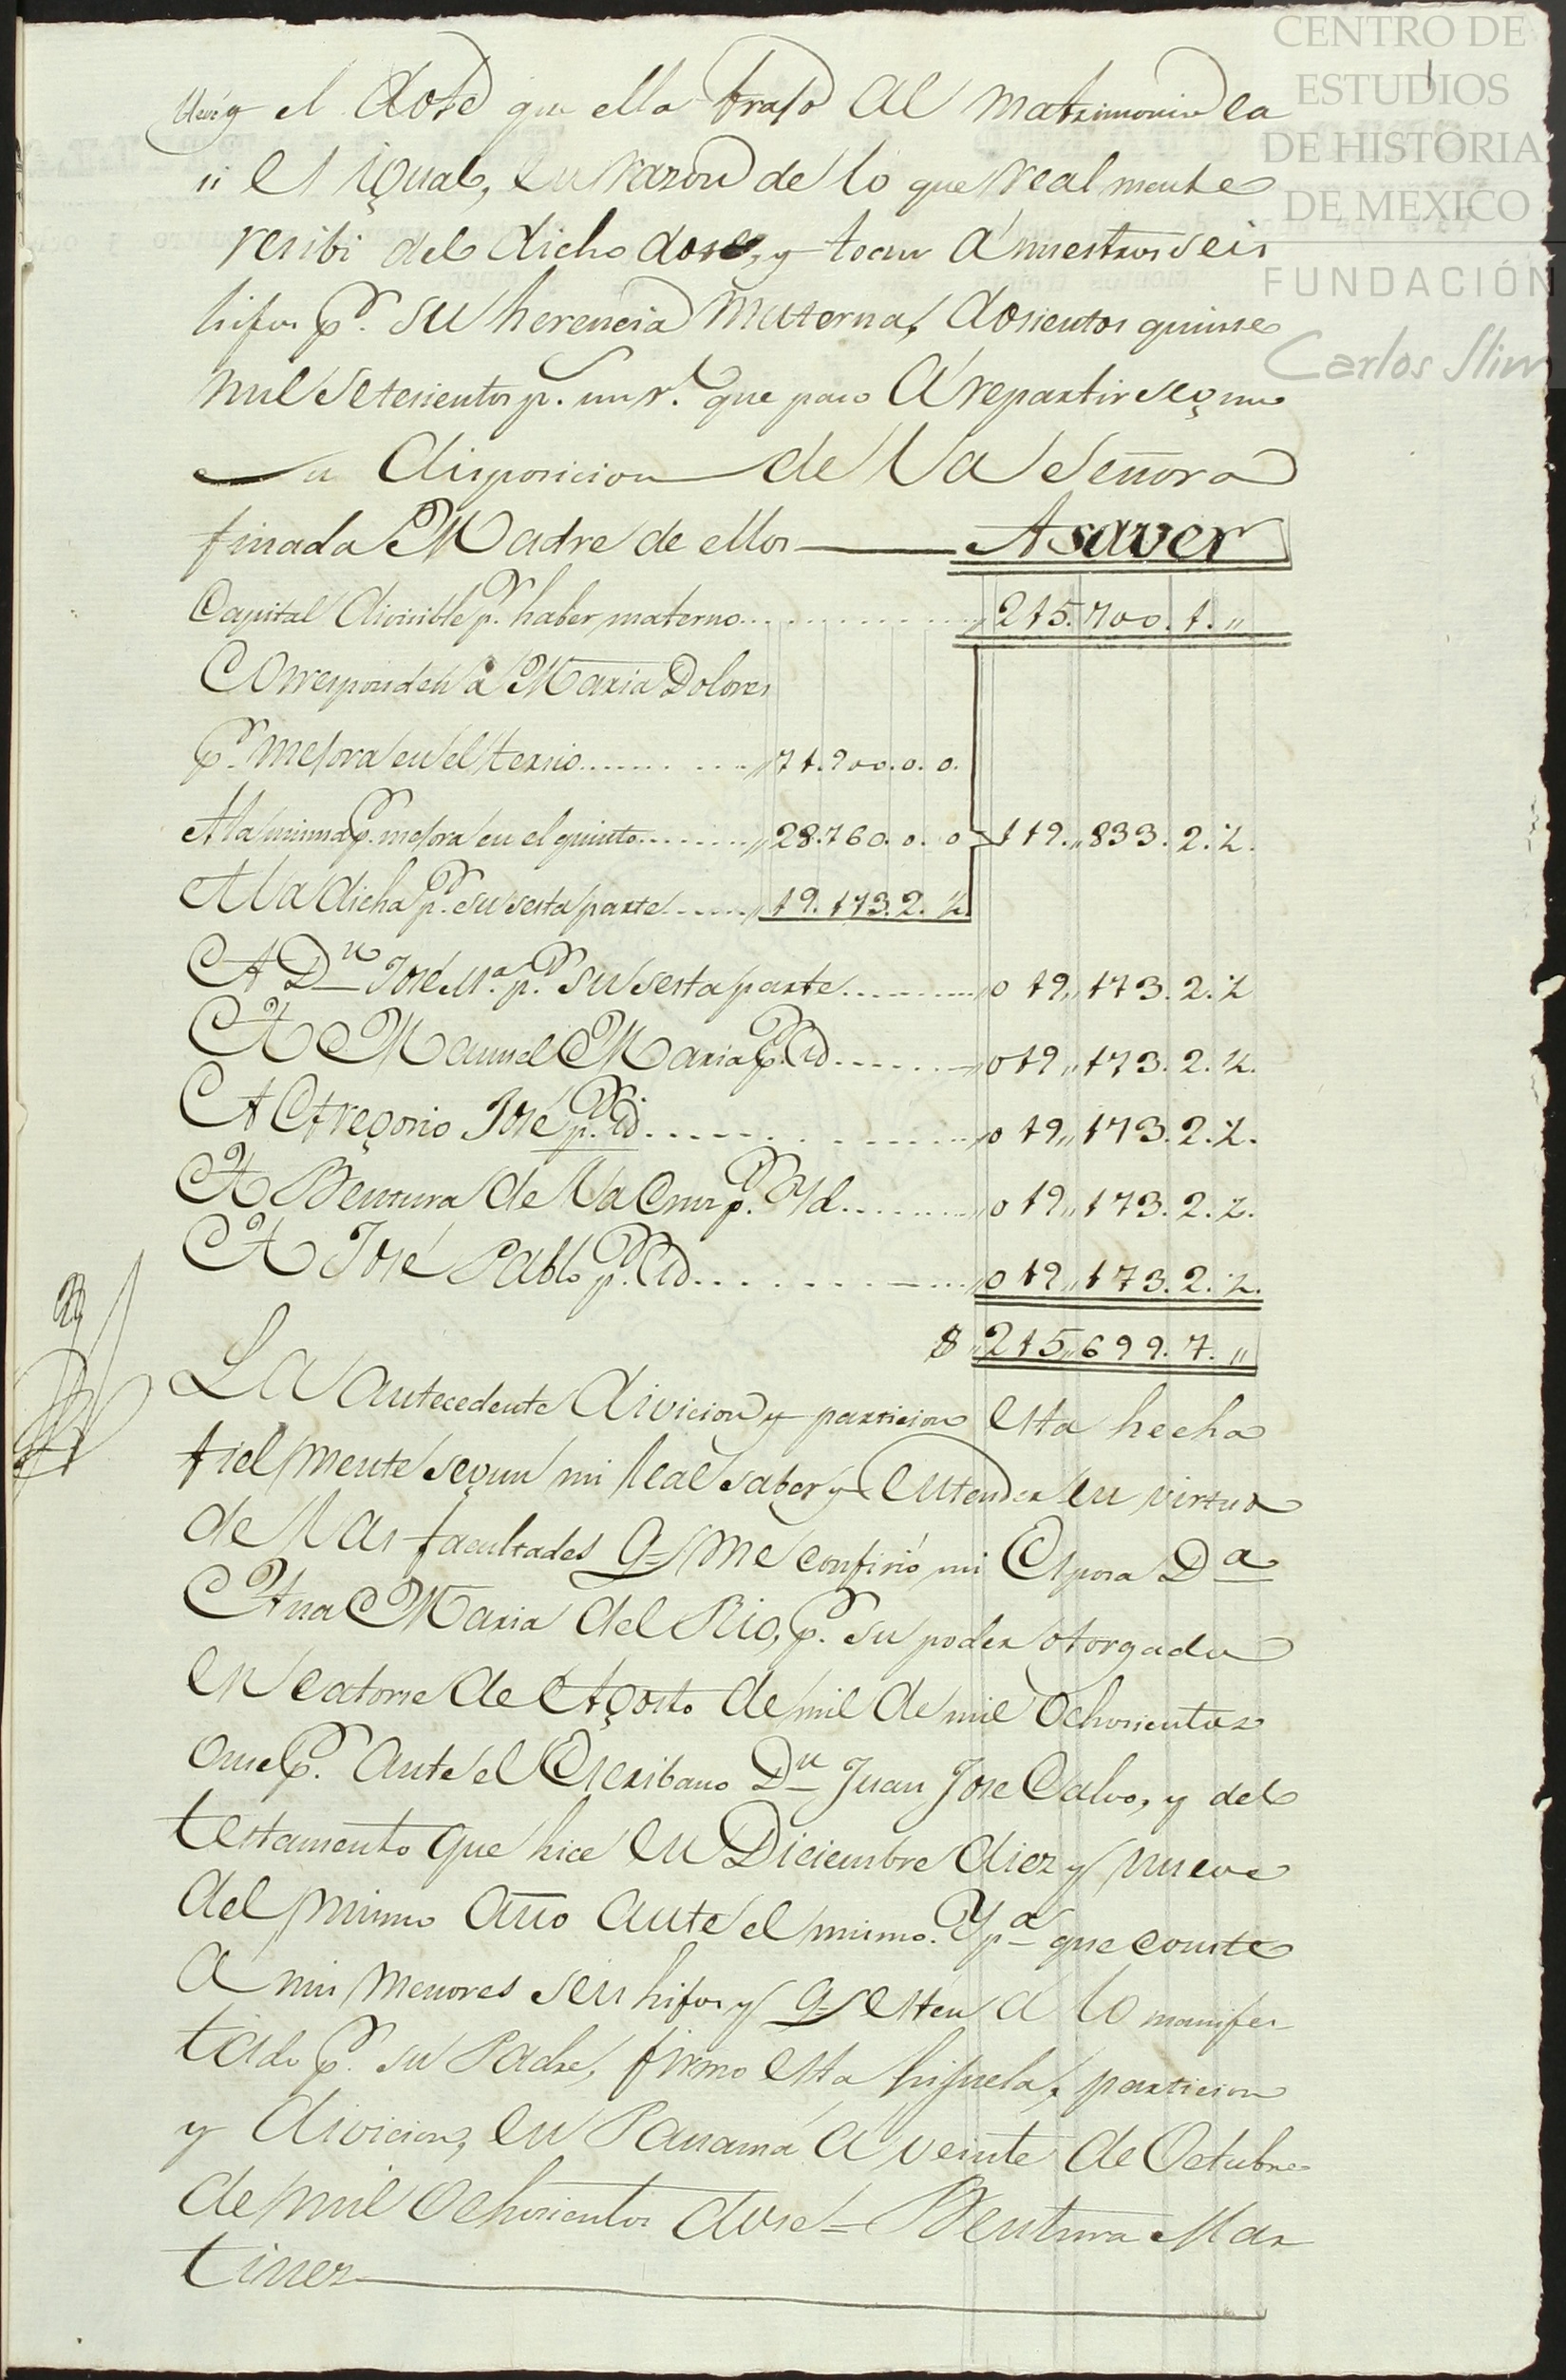 CENTRO DE
ESTUDIOS
DE HISTORIA
DE MEXICO
FUNDACIÓN
Carlos Slim
y el dote que ella trajo al matrimonio ca
" es igual, en razon de lo que realmente
resibi del dicho dote, y tocan á nuestros seis
hijos pr. su herencia materna, dosientos quinse
mil setesientos p. un r. que paso á repartir segun
su disposicion de la Señora
finada Madre de ellos ——— A saver
Capital divisible pr. haber materno.......... 215.700.1."
Corresponden a Maria Dolores
pr. mejora en el tersio.......... 71.900.0.0.
A la misma pr. mejora en el quinto....... 28.760.0.0 119.,833.2.½.
A la dicha pr. su sesta parte...... 19.173.2.½
A Dn José Ma. pr. su sesta parte.......... 019,,173.2.½
A Manuel Maria pr. Id....... 019,,173.2.½.
A Gregorio José pr. id............ 019,,173.2.½.
A Bentura de la Cruz pr. Id......... 019,,173.2.½.
A José Pablo pr. Id............ 019,,173.2.½.
$ 215,,699.7."
La antecedente divicion y particion esta hecha
fielmente segun mi leal saber y entender en virtud
de las facultades q- me confirió mi Esposa Da
Ana Maria del Rio, pr. su poder otorgado
en catorse de Agosto de mil de mil ochosientos
onse pr. ante el Escribano Dn Juan Jose Calvo, y del
testamento que hice en Diciembre diez y nueve
del mismo año ante el mismo. Y pa que conste
a mis menores seis hijos y q- esten a lo manifes
tado pr. su Padre, firmo esta hijuela, particion
y divicion, en Panamá á veinte de Octubre
de mil ochosientos dose = Bentura Mar
tines